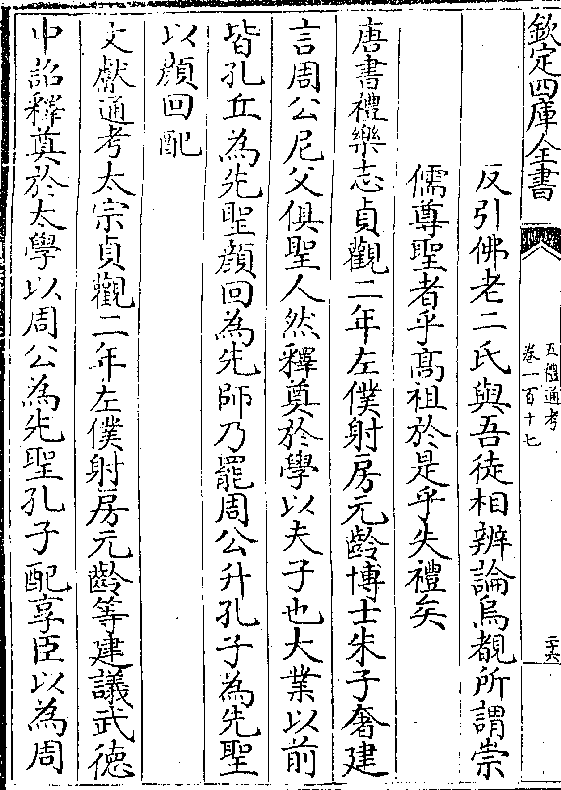 欽定四庫全書
五禮通考
卷一百十七
二十六
反引佛老二氏與吾徒相辨論烏覩所謂崇
儒尊聖者乎高祖於是乎失禮矣
唐書禮樂志貞觀二年左僕射房元齡博士朱子奢建
言周公尼父俱聖人然釋奠於學以夫子也大業以前
皆孔丘為先聖顔回為先師乃罷周公升孔子為先聖
以顔回配
文獻通考太宗貞觀二年左僕射房元齡等建議武徳
中詔釋奠於太學以周公為先聖孔子配享臣以為周